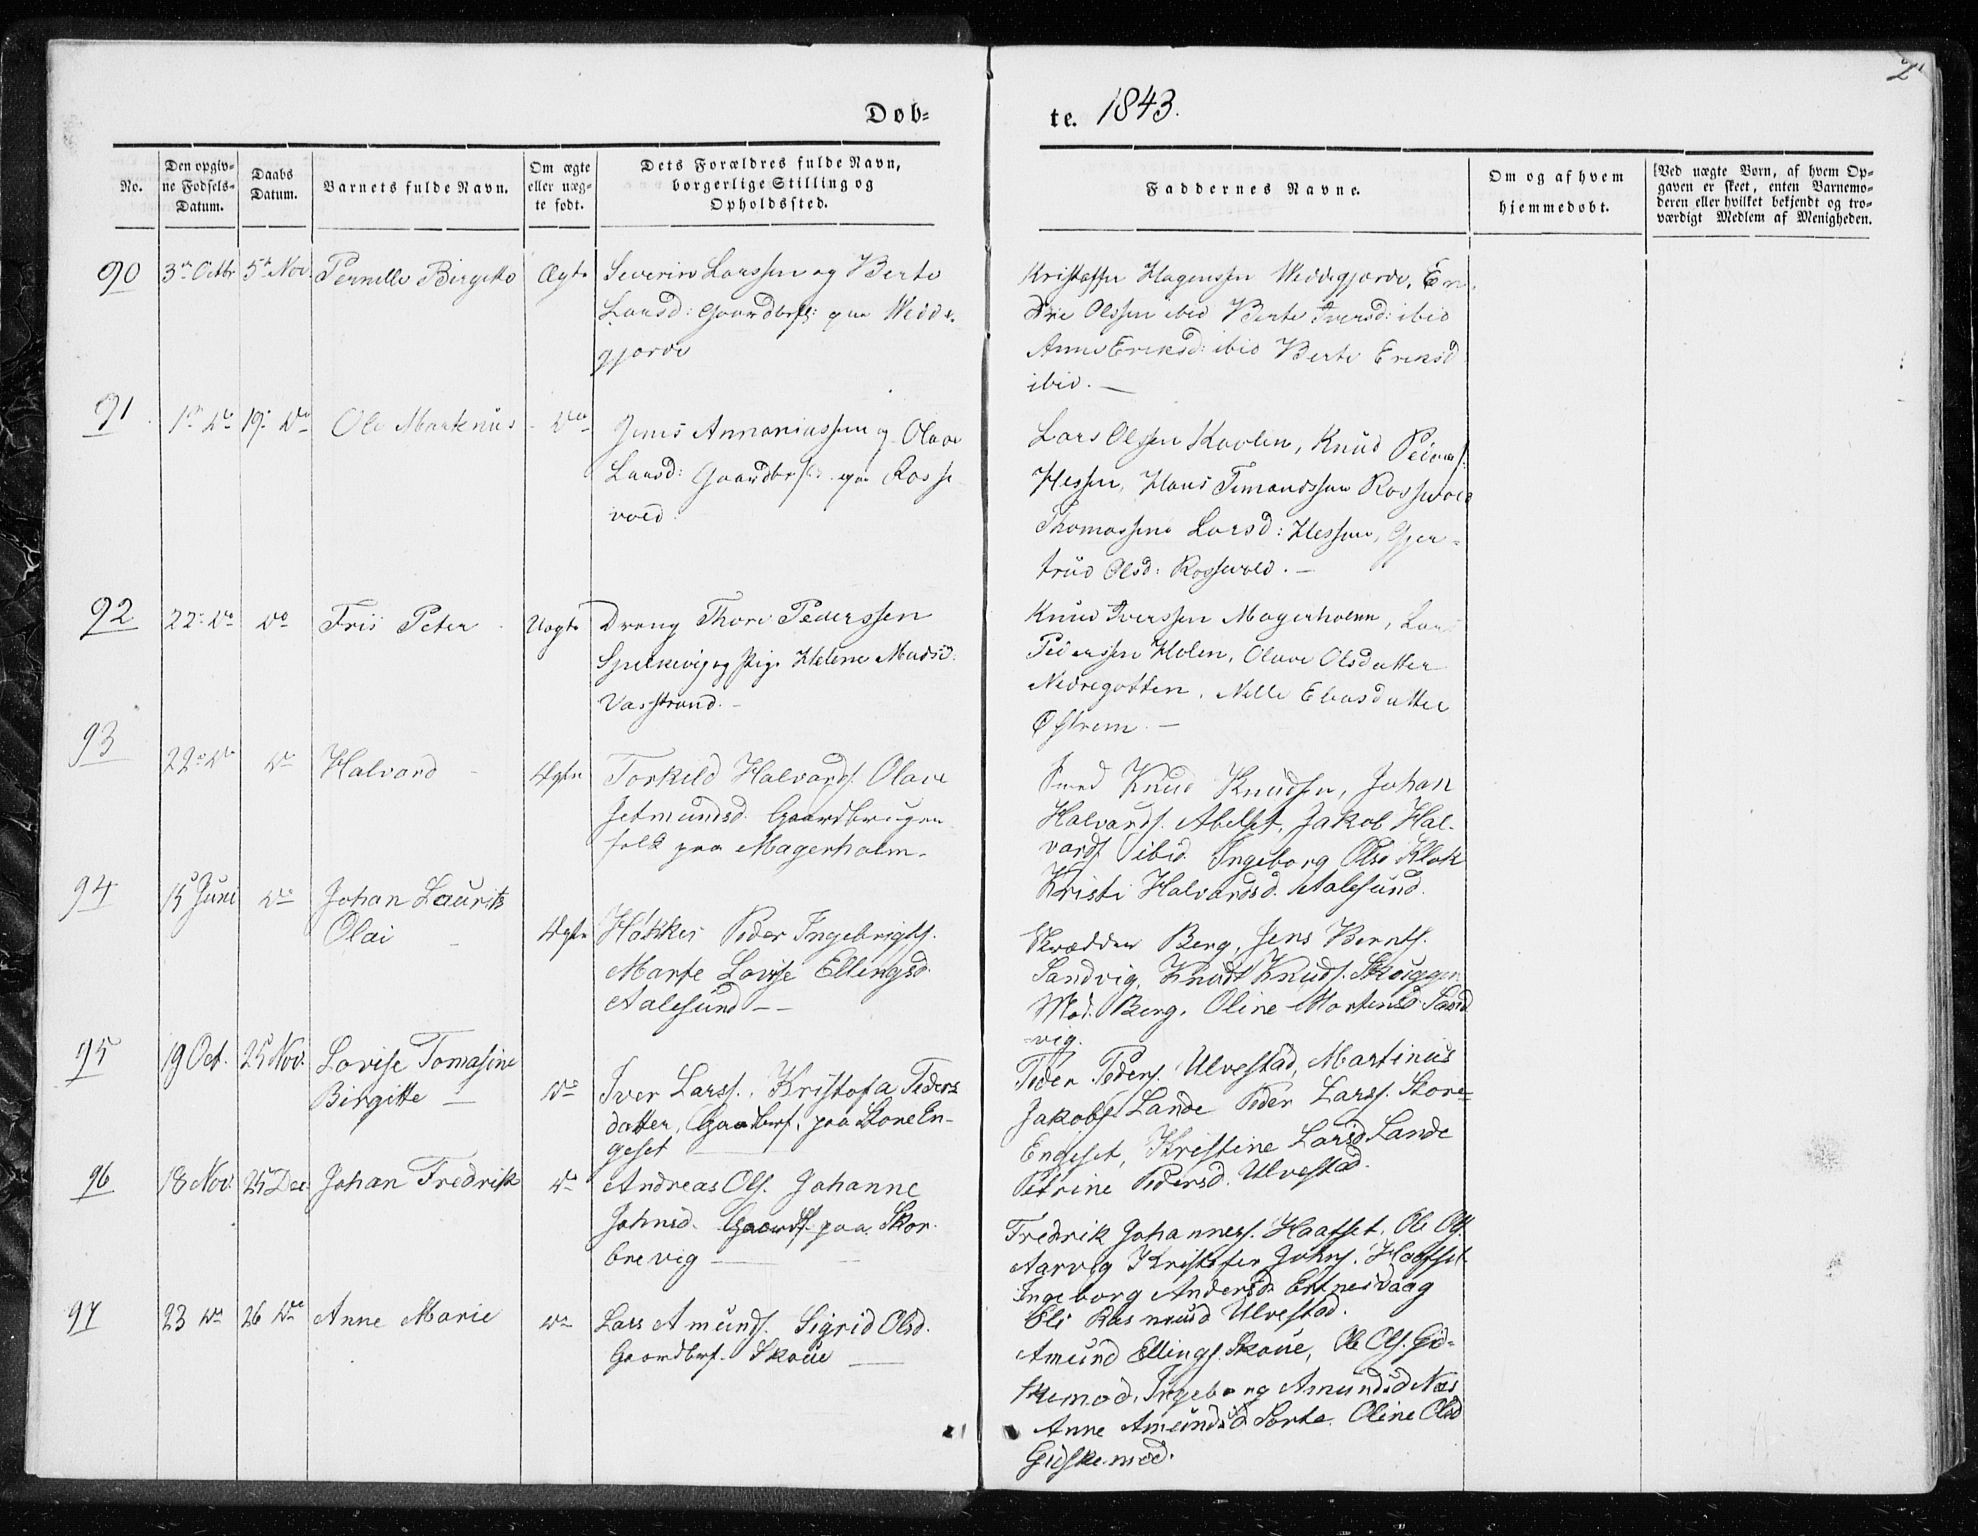 2
Døb=
te. 1843.
No.
Den opgiv=
ne Fødsels=
Datum.
Daabs
Datum.
Barnets fulde Navn.
Om ægte
eller uæg=
te født.
Dets Forældres fulde Navn,
borgerlige Stilling og
Opholdssted.
Faddernes Navne.
Om og af hvem
hjemmedøbt.
[Ved uægte Børn, af hvem Op=
gaven er skeet, enten Barnemo=
deren eller hvilket bekjendt og tro=
værdigt Medlem af Menigheden.
90 3de Octbr 5te Nov. Pernille Birgitte Ægte Severin Larssen og Berte
Larsd: Gaardbrfl: paa Wedde-
gjerde
Kristoffer Hagenssen Weddegjerde, En-
dre Olssen ibid Berte Iversd: ibid
Anne Eriksd: ibid Berte Eriksd
ibid. —
91 1ste do 19. do Ole Martinus do Jens Annaniassen og Olave
Larsd: Gaardbrf: paa Rosse
vold.
Lars Olssen Kavlen, Knud Peders:
Hessen, Hans Timandssen Rossevold
Thomassine Larsd: Hessen, Gjer-
trud Olsd: Rossevold. —
92 22. do do Fris Peter Uægte Dreng Thore Pederssen
Spilkevig og Pige Helene Madsd.
Vasstrand. —
Knud Iverssen Magerholm, Lars
Pederssen Holen, Olave Olsdatter
Nedregotten, Nille Eliasdatter
Østrem. —
93 22. do do Halvard Ægte Torkild Halvards. Olave
Jetmundsd. Gaardbruger
folk paa Magerholm.
Smed Knud Knudsen, Johan
Halvards. Abelset, Jakob Hal-
vards. ibid. Ingeborg Olsd Klok
Kristi Halvardsd. Aalesund.
94 15 Juni do Johan Laurits
Olai Ægte Høkker Peder Ingebrigts.
Marte Lovise Ellingsd.
Aalesund —
Skrædder Berg, Jens Bernts.
Sandvig, Knudt Knuds. Skougger
Mad. Berg, Oline Mortensd Sand
vig.
95 19 Oct. 25 Nov. Lovise Tomasine
Birgitte — do Iver Larss., Kristofa Peders
datter, Gaardbrf. paa Store En-
geset
Peder Peders. Ulvestad, Martinus
Jakobs. Lande Peder Larss. Store
Engeset, Kristine Larsd Lande
Petrine Pedersd. Ulvestad.
96 18 Nov. 25 Dec. Johan Fredrik do Andreas Ols. Johanne
Johnsd. Gaardf. paa Skor-
brevig —
Fredrik Johanness. Haafset, Ole Ols.
Aarvig Kristofer Johns. Haafset
Ingeborg Andersd.
Eli Rasmusd Ulvestad.
97 23 do 26 do Anne Marie do Lars Amunds. Sigrid Olsd.
Gaardbrf. Skoue —
Amund Ellings. Skoue, Ole Ols. Gid-
skemod, Ingeborg Amundsd Næs
Anne Amundsd Sorte. Oline Olsd
Gidskemod.